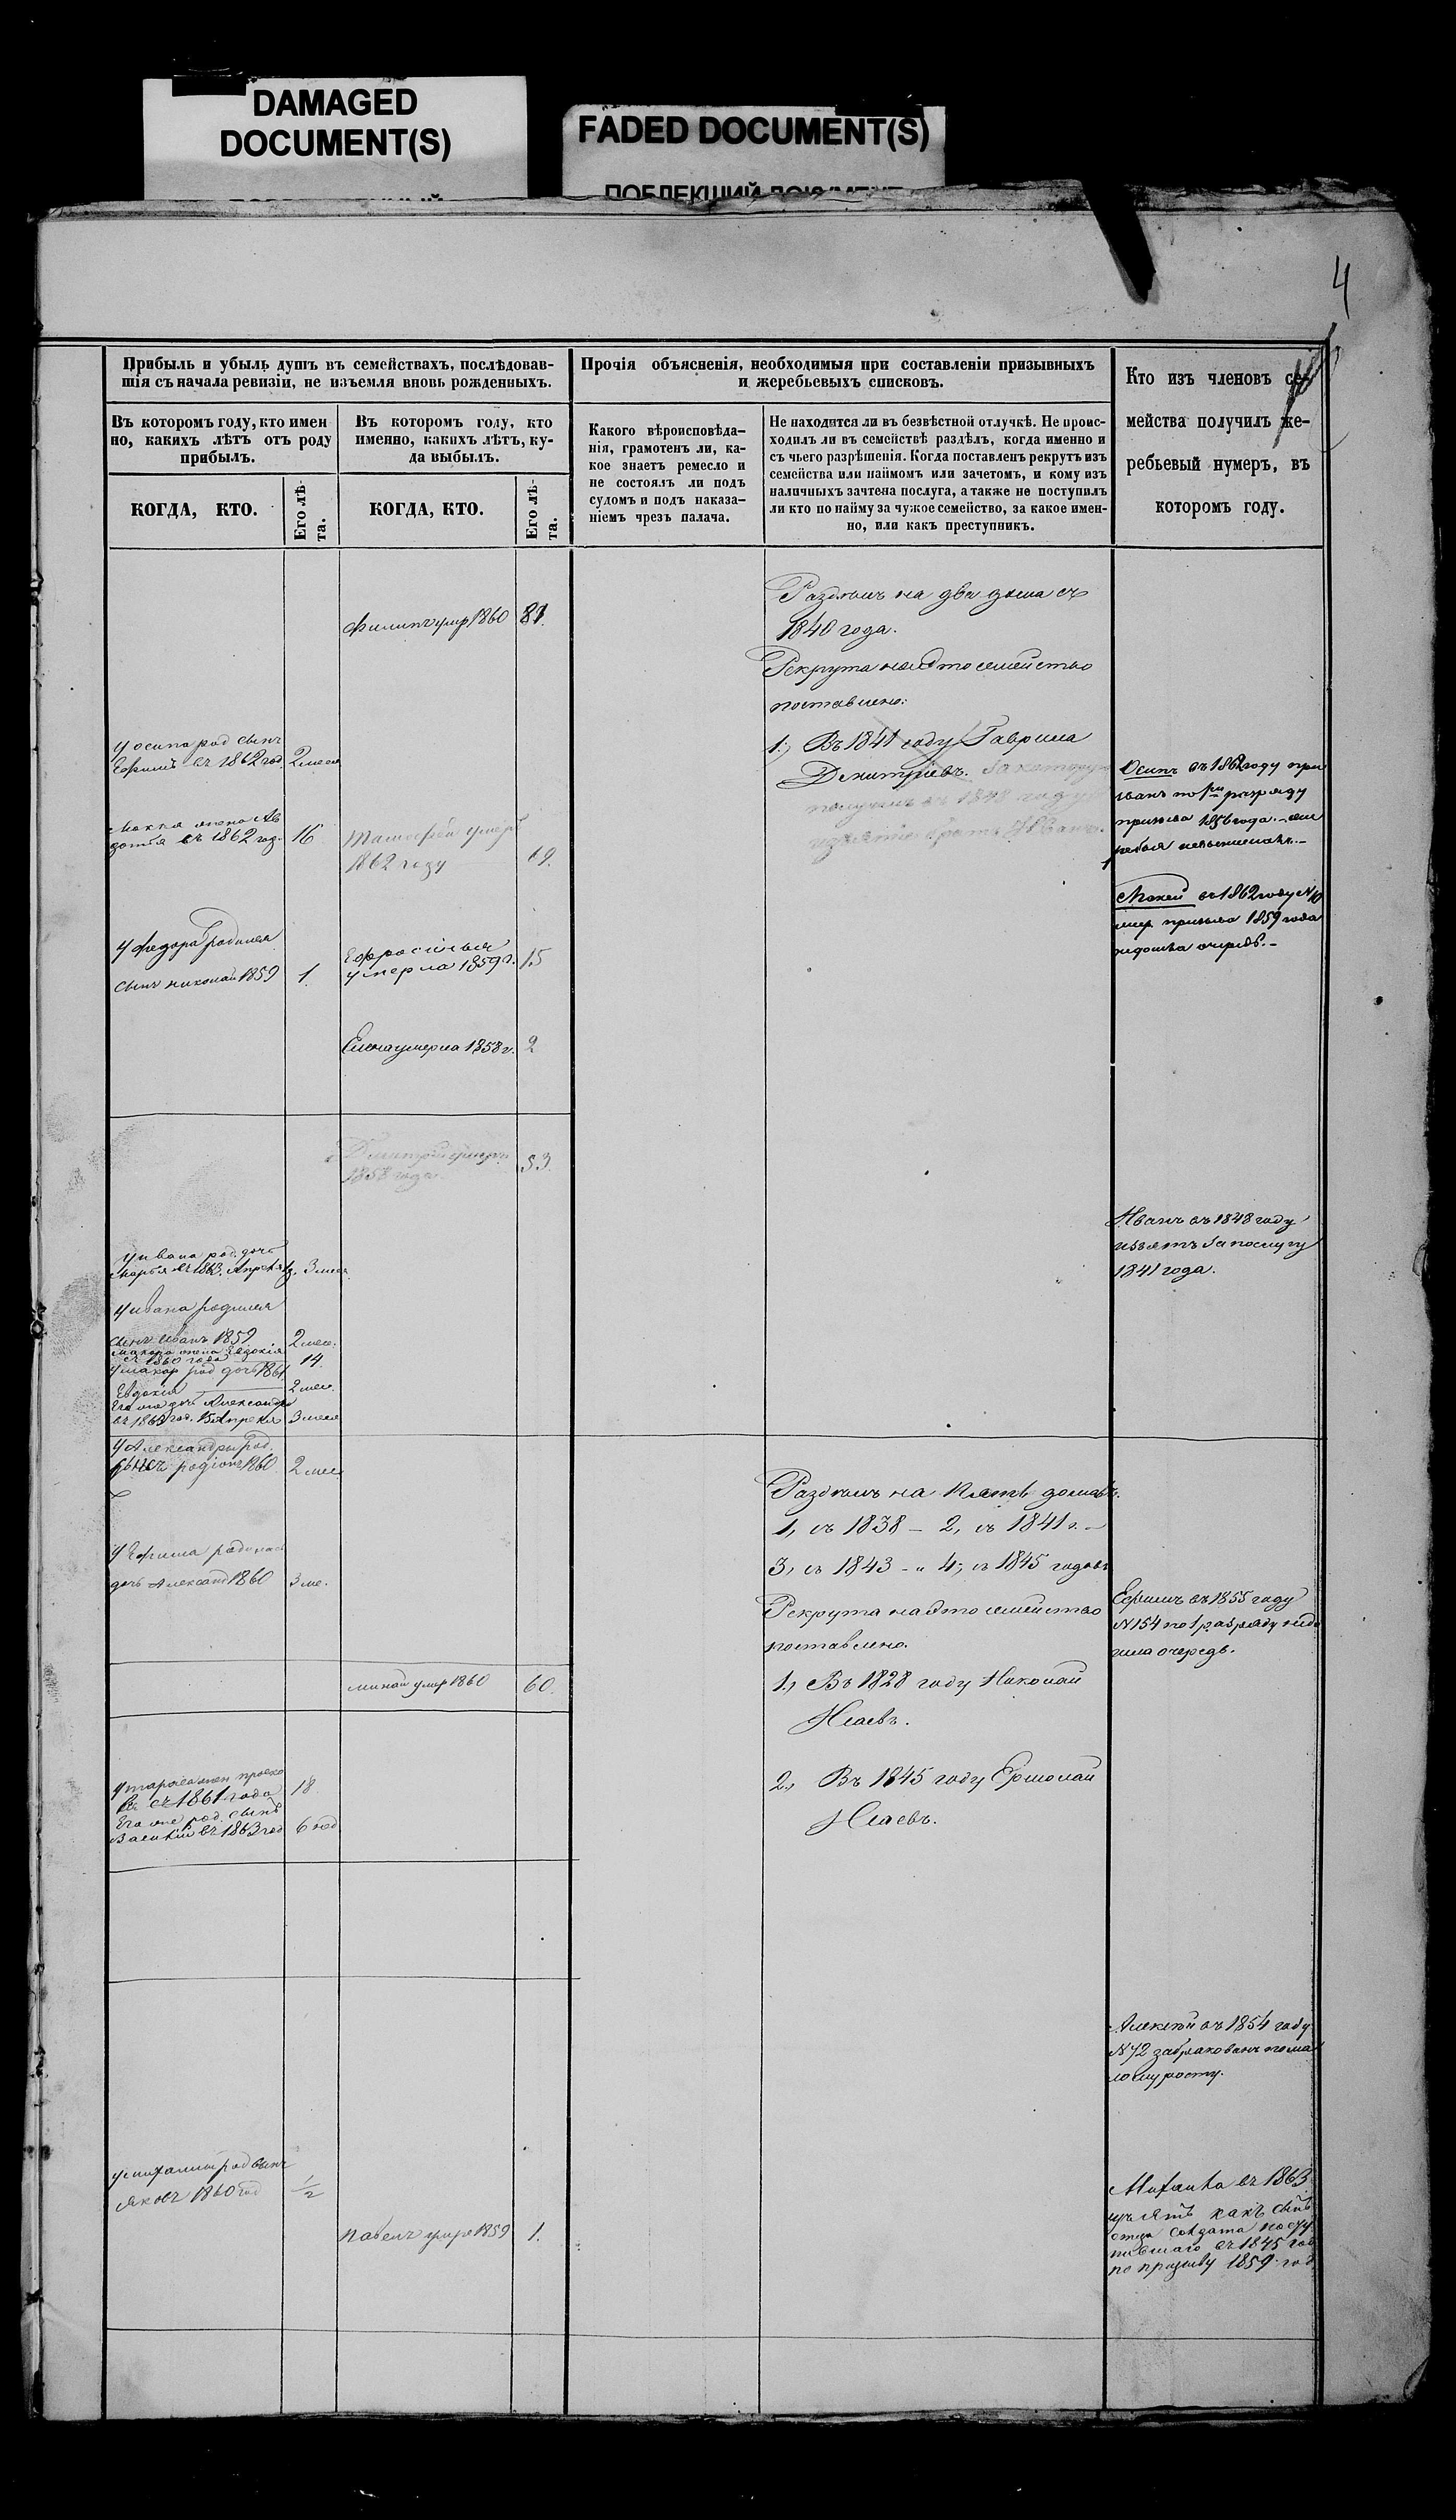 DAMAGED
DOCUMENT(S)
FADED DOCUMENT(S)
4
Прибыль и убыль душъ въ семействахъ, послѣдовав-
шія съ начала ревизіи, не изъемля вновь рожденныхъ.
Въ которомъ году, кто имен
но, какихъ лѣтъ отъ роду
прибылъ.
КОГДА, КТО.
Его лѣ-
та.
Въ которомъ году, кто
именно, какихъ лѣтъ, ку-
да выбылъ.
КОГДА, КТО.
Его лѣ-
та.
Прочія объясненія, необходимыя при составленіи призывныхъ
и жеребьевыхъ списковъ.
Какого вѣроисповѣда-
нія, грамотенъ ли, ка-
кое знаетъ ремесло и
не состоялъ ли подъ
судомъ и подъ наказа-
ніемъ чрезъ палача.
Не находится ли въ безвѣстной отлучкѣ. Не проис-
ходилъ ли въ семействѣ раздѣлъ, когда именно и
съ чьего разрѣшенія. Когда поставленъ рекрутъ изъ
семейства или наймомъ или зачетомъ, и кому изъ
наличныхъ зачтена послуга, а также не поступилъ
ли кто по найму за чужое семейство, за какое имен-
но, или какъ преступникъ.
Кто изъ членовъ се-
мейства получилъ же-
ребьевый нумеръ, въ
которомъ году.
Филипъ умр 1860
Раздѣлъ на два дома съ
1840 года.
Рекрута на это семейство
поставлено:
1., Въ 1841 году Гаврила
Дмитріевъ. за которую
получилъ въ 1848 году
изъятіе братъ Иванъ.
У осипа род сынъ
Ефимъ въ 1862 год.
2 меся
жена Ав
дотья съ 1862 год.
16
умеръ
1862 году
69.
Осипъ въ 1862 году при
званъ по 1му разряду
призыва 1856 года.
Мокей въ 1862 году N 10
призыва 1859 года
недошла очередь.
У Федора родился
сынъ николай 1859
1.
Ефросинья
умерла 1859 г.
15
Елена умерла 1858 г.
2
Дмитрій умеръ
1858 года.
53.
Иванъ въ 1848 году
изъятъ за послугу
1841 года.
У ивана род. дочь
Марья въ 1863. Апреля
3 меся
У ивана родился
сынъ иванъ 1859
2 мес.
Макара жена Евдокія
съ 1860 года
14.
У макар род дочь 1861
Евдокія
2 мес.
Его же дочь Александра
въ 1863 год. 15 Апреля
3 меся
У Александры род.
сынъ родіонъ 1860
2 мес
Раздѣлъ на пять домовъ.
1, съ 1838 – 2, съ 1841 г. –
3, съ 1843 – " 4, съ 1845 годовъ
Рекрута на это семейство
поставлено.
У Ефима родилась
дочь Александ 1860
3 ме.
Ефимъ въ 1855 году
N 154 по 1 разряду недо
шла очередь.
минай умр 1860
60.
1., Въ 1828 году Николай
Исаевъ.
2., Въ 1845 году Ермолай
Исаевъ.
съ 1861 года
18
Его же род. сынъ
Василій въ 1863 год
6 нед
Алексѣй въ 1854 году
N 72 забракованъ по ма
лому росту.
род сынъ
Яковъ 1860 год
1/2
Павелъ умре 1859
1.
Михаила въ 1863
изъятъ какъ сынъ
отца солдата посту
пившаго въ 1845 год
по призыву 1859 год